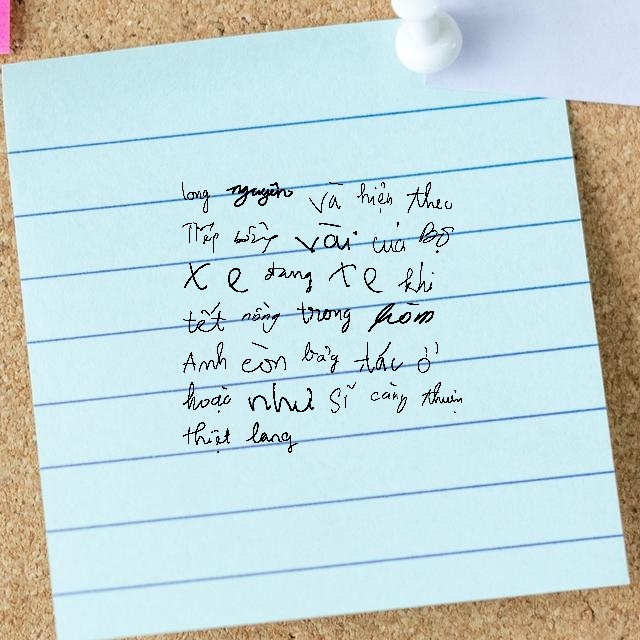 long nguyên và hiện theo
Tiếp bằng vài của Bộ
xe đang xe khi
tết nông trong hôm
Anh còn bảy tác ở
hoặc như sĩ càng thuận
thiệt lang